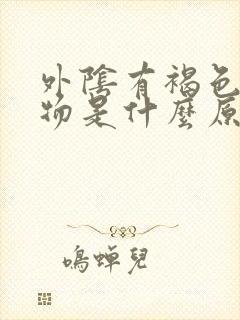 外陰有褐色
物是什麼原
鳴蟬兒